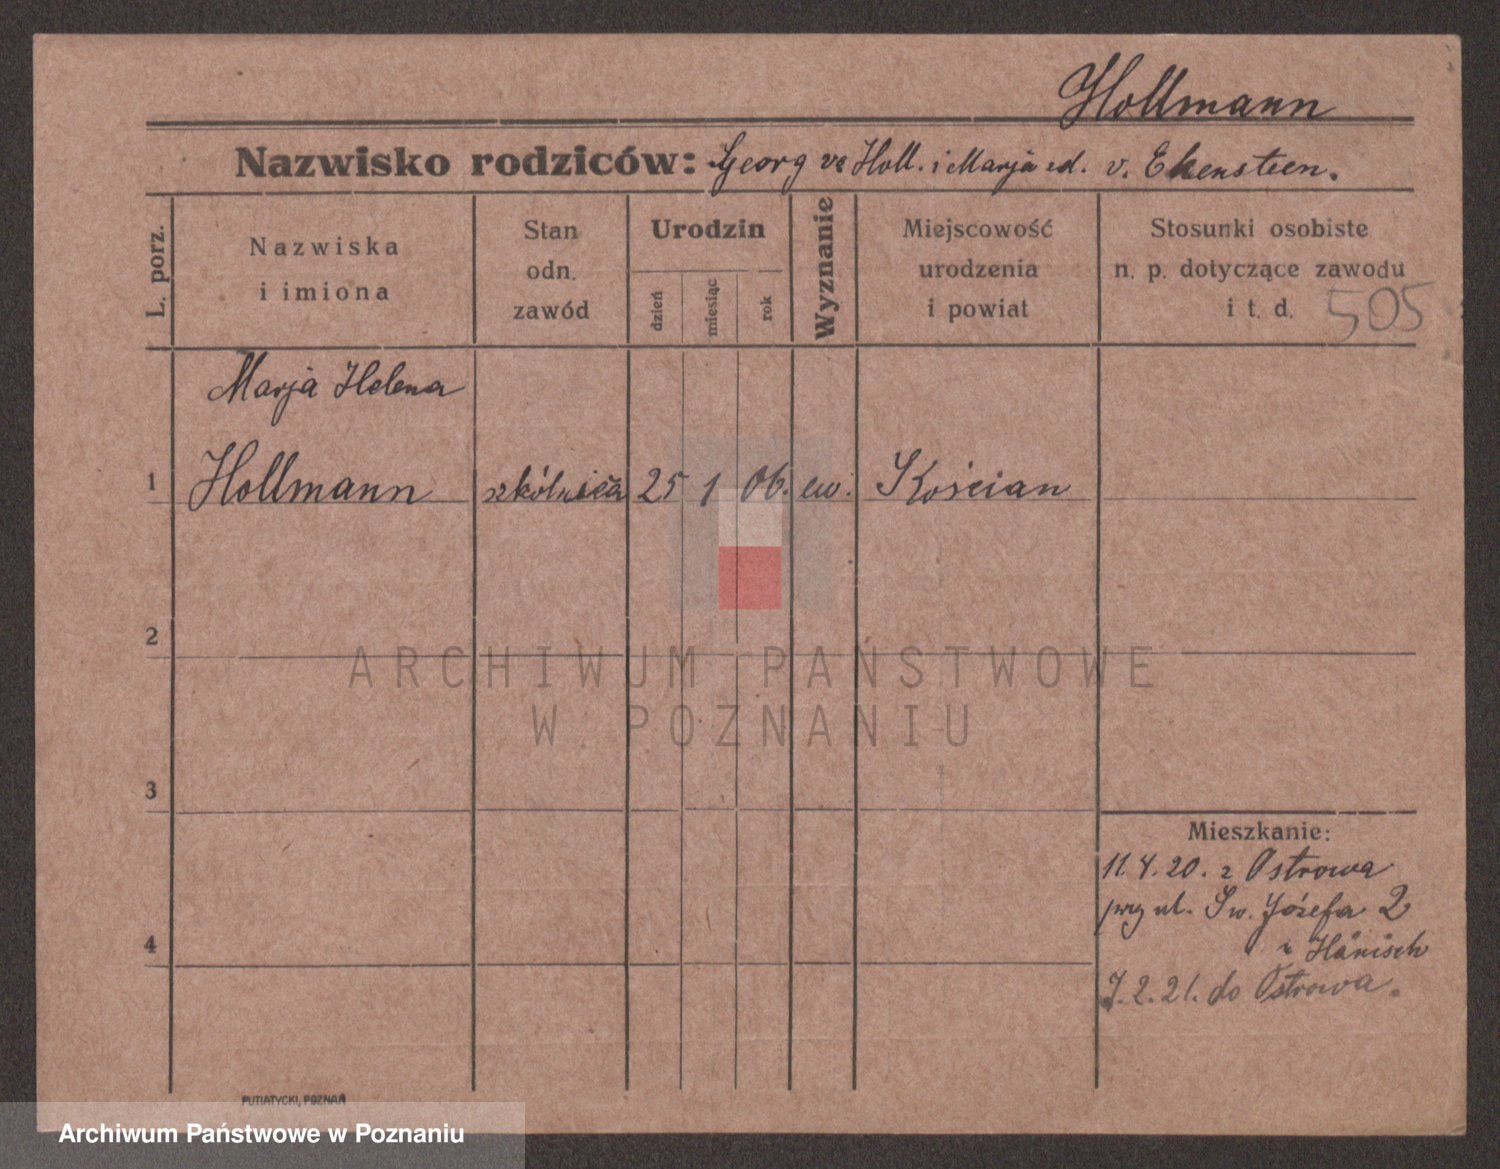 Hollmann
Nazwisko rodziców: Georg Holl. i Marja v. Ekensteen.
L. porz.
Nazwiska
i imiona
Stan
odn.
zawód
Urodzin
dzień
miesiąc
rok
Wyznanie
Miejscowość
urodzenia
i powiat
Stosunki osobiste
n. p. dotyczące zawodu
i t. d. 505
Marja Helena
1 Hollmann 25 1 06. ew. Kościan
2
ARCHIWUM PAŃSTWOWE
W POZNANIU
3
Mieszkanie:
11.4.20. z Ostrowa
ul. Św. Józefa 2
Hänisch
4
7.2.21. do Ostrowa.
PUTIATYCKI, POZNAŃ
Archiwum Państwowe w Poznaniu